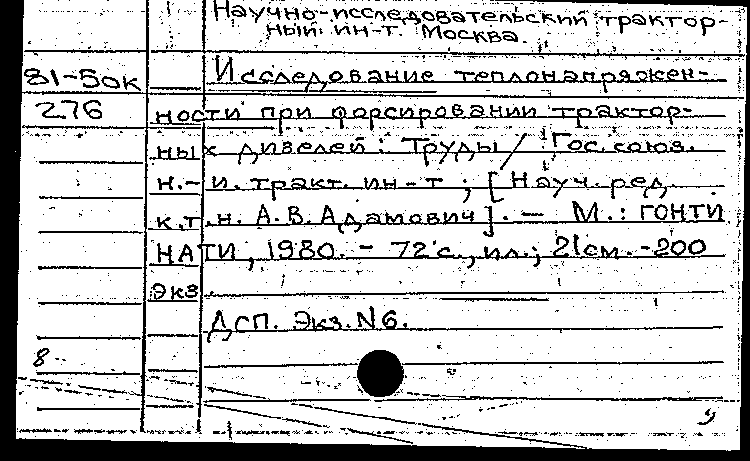 Научно-исследовательский трактор-
ный ин-т. Москва.
81-5ок Исследование теплонапряжен-
276 ности при форсировании трактор-
ных дизелей: Труды / Гос. союз.
н.-и. тракт. ин-т ; [Науч. ред.
к.т.н. А.В. Адамович]. — М.: ГОНТИ
НАТИ, 1980. - 72 с., ил.; 21см. -200
экз.
ДСП. Экз. N6.
8